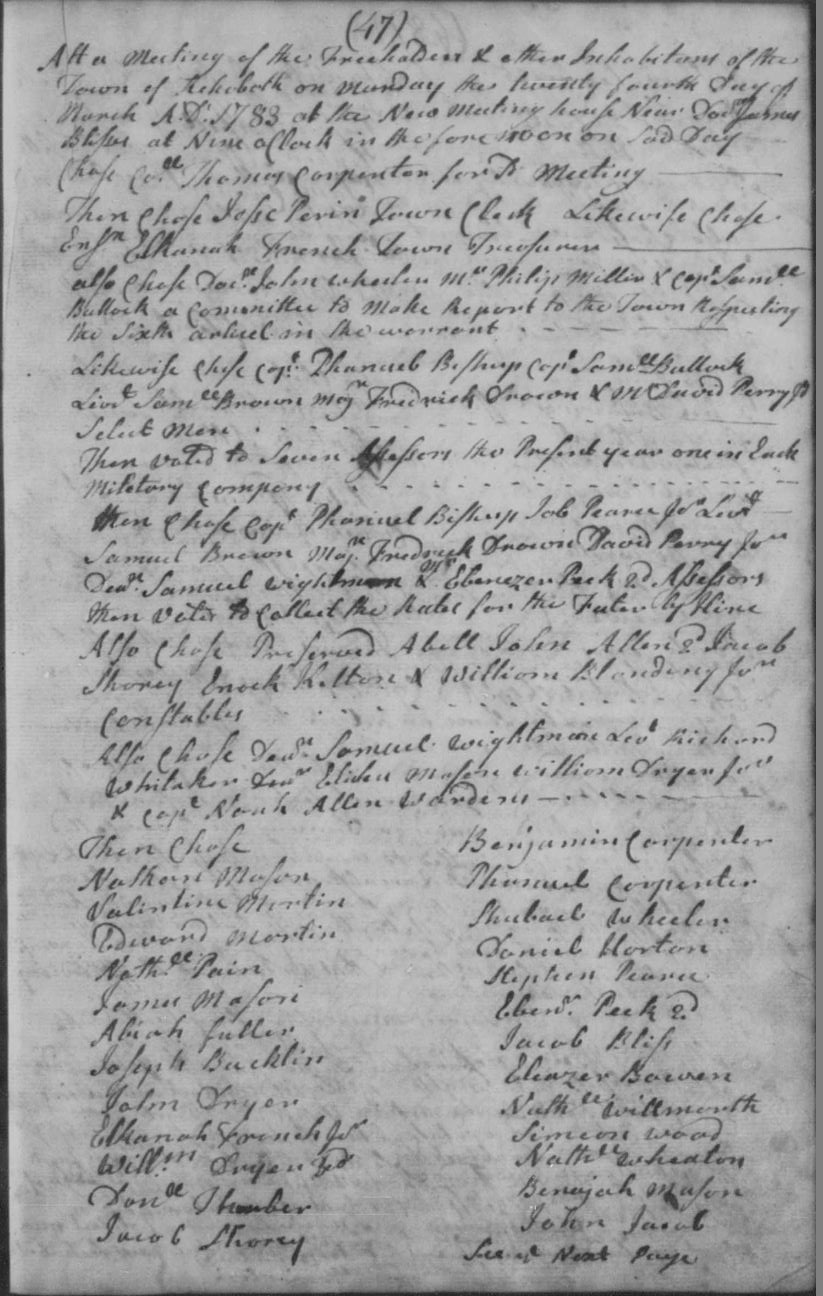 (47)
Att a Meeting of the Freeholders & other Inhabitans of the
Town of Rehoboth on munday the twenty fourth Day of
March A:D: 1783 at the New Meeting house Near Doct James
Blisses at Nine o Clock in the fore noon on Sad Day
Chose Co.ll Thomas Carpenter for Sd Meeting
Then Chose Jesse Perin Town Clerk Likewise Chose
Ensn Elkanah French Town Treasurer
also Chose Deacn John wheeler Mr Philip Miller & Capt Samll
Bullock a Committee to Make Report to the Town Respecting
the Sixth articel in the warrant
Likewise Chose Capt Phanueb Bishup Capt Samll Bullock
Livt Samll Brown Majr Fredrick Drown & Mr David Perry Jr
Select Men
Then voted to Seven Assessors the Present year one in Each
Miletary Company
then Chose Capt Phanuel Bishup Job Pearce Jor Livt
Samuel Brown Majr Fredrick Drown David Perry Jor
Deacn Samuel wightman & Mr Ebenezer Peck 2d Assessors
then voted to Collect the Rates for the Futer by Hire
Also Chose Preserved Abell John Allen 2d Jacob
Shorey Enock Kelton & William Blanding Jor
Constables
Also Chose Deacn Samuel wightman Livt Richard
Whitaker Deacn Elisha Mason william Dryer Jor
& Capt Noah Allen Wardens
Then Chose
Nathan Mason
Valintine Martin
Edward Martin
Nathll Pain
James Mason
Abiah fuller
Joseph Bucklin
John Dryer
Elkanah French Jor
Willm Dryer 3d
Danll Thurber
Jacob Shorey
Benjamin Carpenter
Phanuel Carpenter
Shubael wheeler
Daniel Horton
Stephen Pearce
Ebenr Peck 2d
Jacob Bliss
Eleazer Bowen
Nathll Willmorth
Simeon wood
Nathll wheaton
Benajah Mason
John Jacob
See Next Page